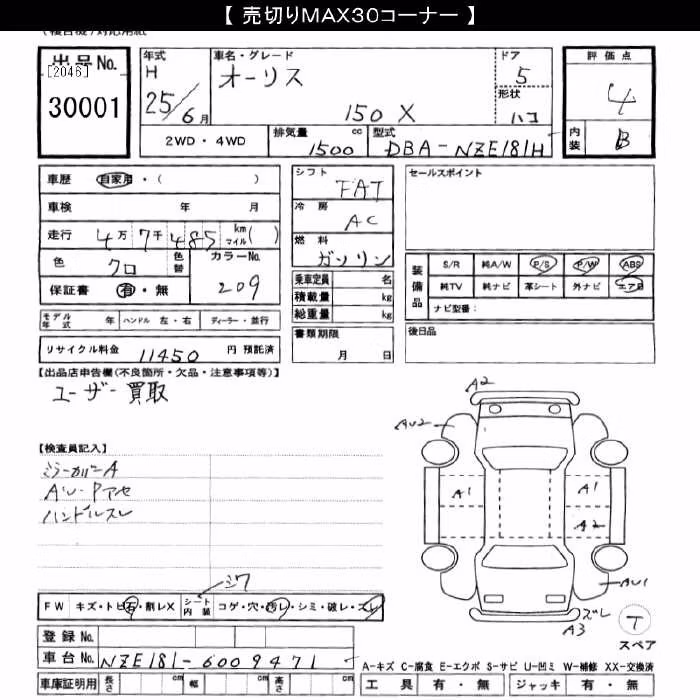 【 売切りMAX30コーナー 】
出品No.
[2046]
30001
年式
H
25/6月
車名・グレード
オーリス
150 X
ドア
5
形状
ハコ
評価点
4
内装
B
2WD・4WD
排気量
1500 cc
型式
DBA-NZE181H
車歴 自家用・( )
車検 年 月
走行 4万 7千 485 km マイル( )
色 クロ 色替
カラーNo.
209
保証書 有・無
シフト
FAT
冷房
AC
燃料
ガソリン
乗車定員 名
積載量 kg
総重量 kg
書類期限
月 日
セールスポイント
装備品
S/R 純A/W P/S P/W ABS
純TV 純ナビ 革シート 外ナビ エアB
ナビ型番:
後日品
モデル年式 年 ハンドル 左・右 ディーラー・並行
リサイクル料金 11450 円 預託済
【出品店申告欄(不良箇所・欠品・注意事項等)】
ユーザー買取
【検査員記入】
ミラーカバーA
AW・Pアセ
ハンドルスレ
シワ
FW キズ・トビ石・割レX シート内装 コゲ・穴・汚レ・シミ・破レ・スレ
登録 No.
車台 No. NZE181-6009471
車庫証明用 長さ cm 幅 cm 高さ cm
A2
AU2
A1
A1
A2
AU1
ズレ
A3
T
スペア
A-キズ C-腐食 E-エクボ S-サビ U-凹ミ W-補修 XX-交換済
工具 有・無 ジャッキ 有・無